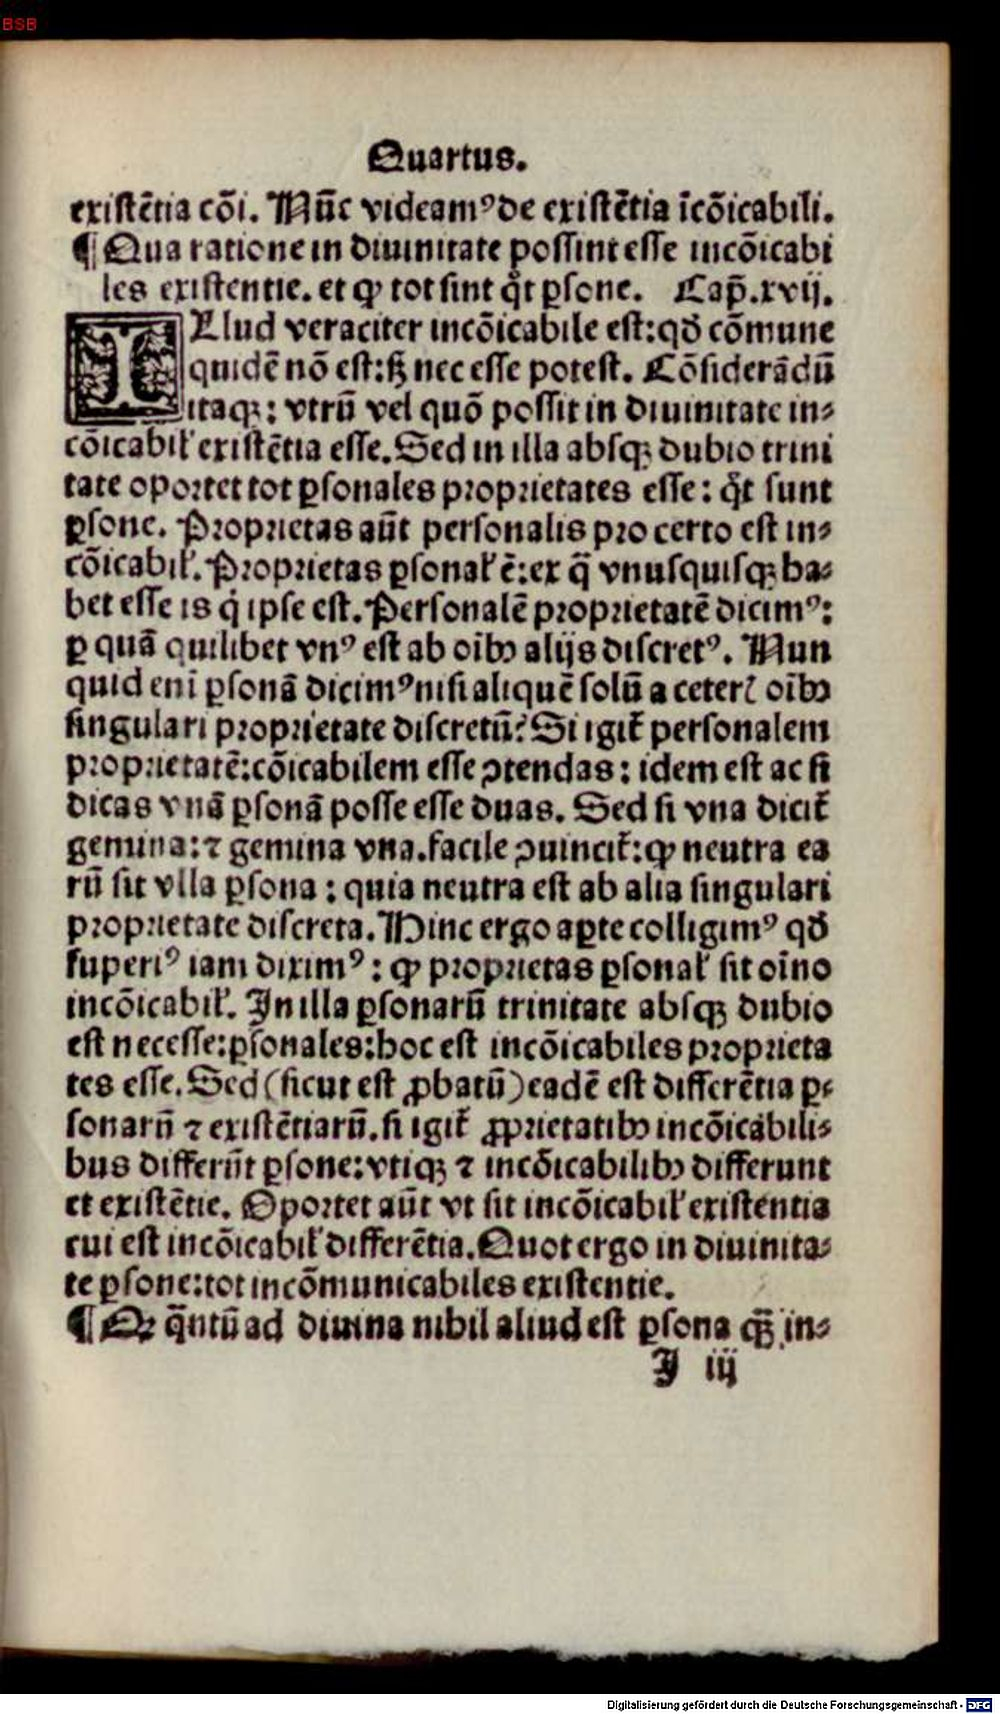 BSB
Quartus.
existētia cōi. Nūc videamꝰ de existētia īcōicabili.
¶ Qua ratione in diuinitate possint esse incōicabi
les existentie. et ꝙ tot sint q̊t ꝑsone. Cap̄.xvij.
ILlud veraciter incōicabile est: qđ cōmune
quidē nō est: sꝫ nec esse potest. Cōsiderādū
itaqꝫ: vtrū vel quō possit in diuinitate in⸗
cōicabil̕ existētia esse. Sed in illa absqꝫ dubio trini
tate oportet tot ꝑsonales proprietates esse: q̊t sunt
ꝑsone. Proprietas aūt personalis pro certo est in⸗
cōicabil̕. Proprietas ꝑsonal̕ ē: ex q̄ vnusquisqꝫ ha⸗
bet esse is q̇ ipse est. Personalē proprietatē dicimꝰ:
ꝑ quā quilibet vnꝰ est ab oībꝰ alijs discretꝰ. Nun
quid enī ꝑsonā dicimꝰ nisi aliquē solū a ceterꝭ oībꝰ
singulari proprietate discretū? Si igit̄ personalem
proprietatē: cōicabilem esse ↄtendas: idem est ac si
dicas vnā ꝑsonā posse esse duas. Sed si vna dicit̄
gemina: ⁊ gemina vna. facile ↄuincit̄: ꝙ neutra ea
rū sit vlla ꝑsona: quia neutra est ab alia singulari
proprietate discreta. Hinc ergo aꝑte colligimꝰ qđ
superiꝰ iam diximꝰ: ꝙ proprietas ꝑsonal̕ sit oīno
incōicabil̕. In illa ꝑsonarū trinitate absqꝫ dubio
est necesse: ꝑsonales: hoc est incōicabiles proprieta
tes esse. Sed (sicut est ꝓbatū) eadē est differētia ꝑ⸗
sonarū ⁊ existētiarū. si igit̄ ꝓprietatibꝰ incōicabili⸗
bus differūt ꝑsone: vtiqꝫ ⁊ incōicabilibꝰ differunt
et existētie. Oportet aūt vt sit incōicabil̕ existentia
cui est incōicabil̕ differētia. Quot ergo in diuinita⸗
te ꝑsone: tot incōmunicabiles existentie.
¶ Qꝫ q̄ntū ad diuina nihil aliud est ꝑsona qꝫ̄ in⸗
I iij
Digitalisierung gefördert durch die Deutsche Forschungsgemeinschaft - DFG